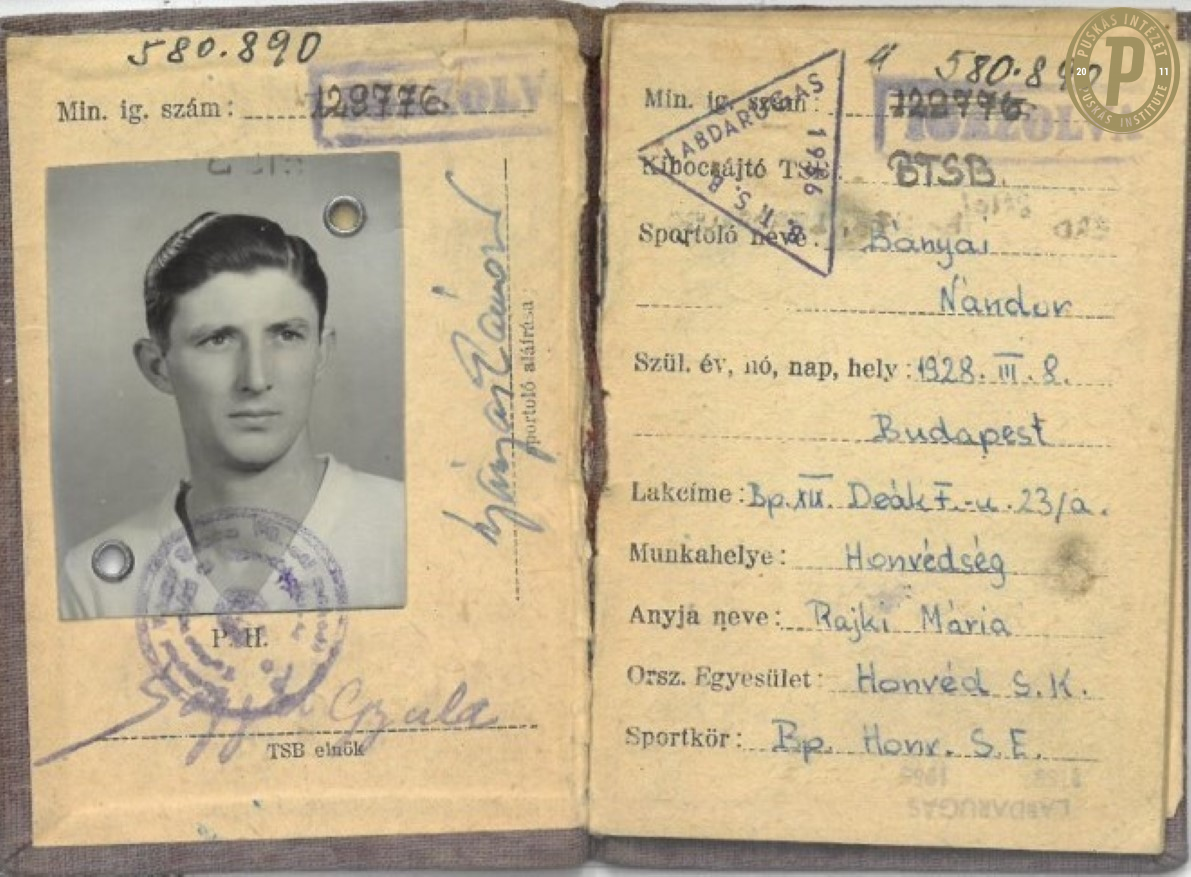 580.890
Min. ig. szám: 129776
Sportoló aláírása:
P. H.
Gyula
TSB elnök
PUSKÁS INTÉZET
20 P 11
PUSKÁS INSTITUTE
580.890
Min. ig. szám: 129776
IGAZOLVA
LABDARUGÁS
1956
B.T.S.B.
Kibocsájtó TSB: BTSB.
Sportoló neve: Bányai
Nándor
Szül. év, hó, nap, hely: 1928. III. 8.
Budapest
Lakcíme: Bp. XII. Deák F.-u. 23/a.
Munkahelye: Honvédség
Anyja neve: Rajki Mária
Orsz. Egyesület: Honvéd S.K.
Sportkör: Bp. Honv. S.E.
LABDARUGÁS